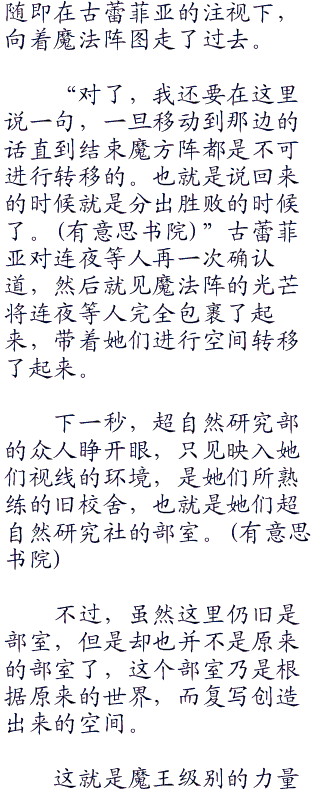 随即在古蕾菲亚的注视下，
向着魔法阵图走了过去。
“对了，我还要在这里
说一句，一旦移动到那边的
话直到结束魔方阵都是不可
进行转移的。也就是说回来
的时候就是分出胜败的时候
了。(有意思书院)”古蕾菲
亚对连夜等人再一次确认
道，然后就见魔法阵的光芒
将连夜等人完全包裹了起
来，带着她们进行空间转移
了起来。
下一秒，超自然研究部
的众人睁开眼，只见映入她
们视线的环境，是她们所熟
练的旧校舍，也就是她们超
自然研究社的部室。(有意思
书院)
不过，虽然这里仍旧是
部室，但是却也并不是原来
的部室了，这个部室乃是根
据原来的世界，而复写创造
出来的空间。
这就是魔王级别的力量